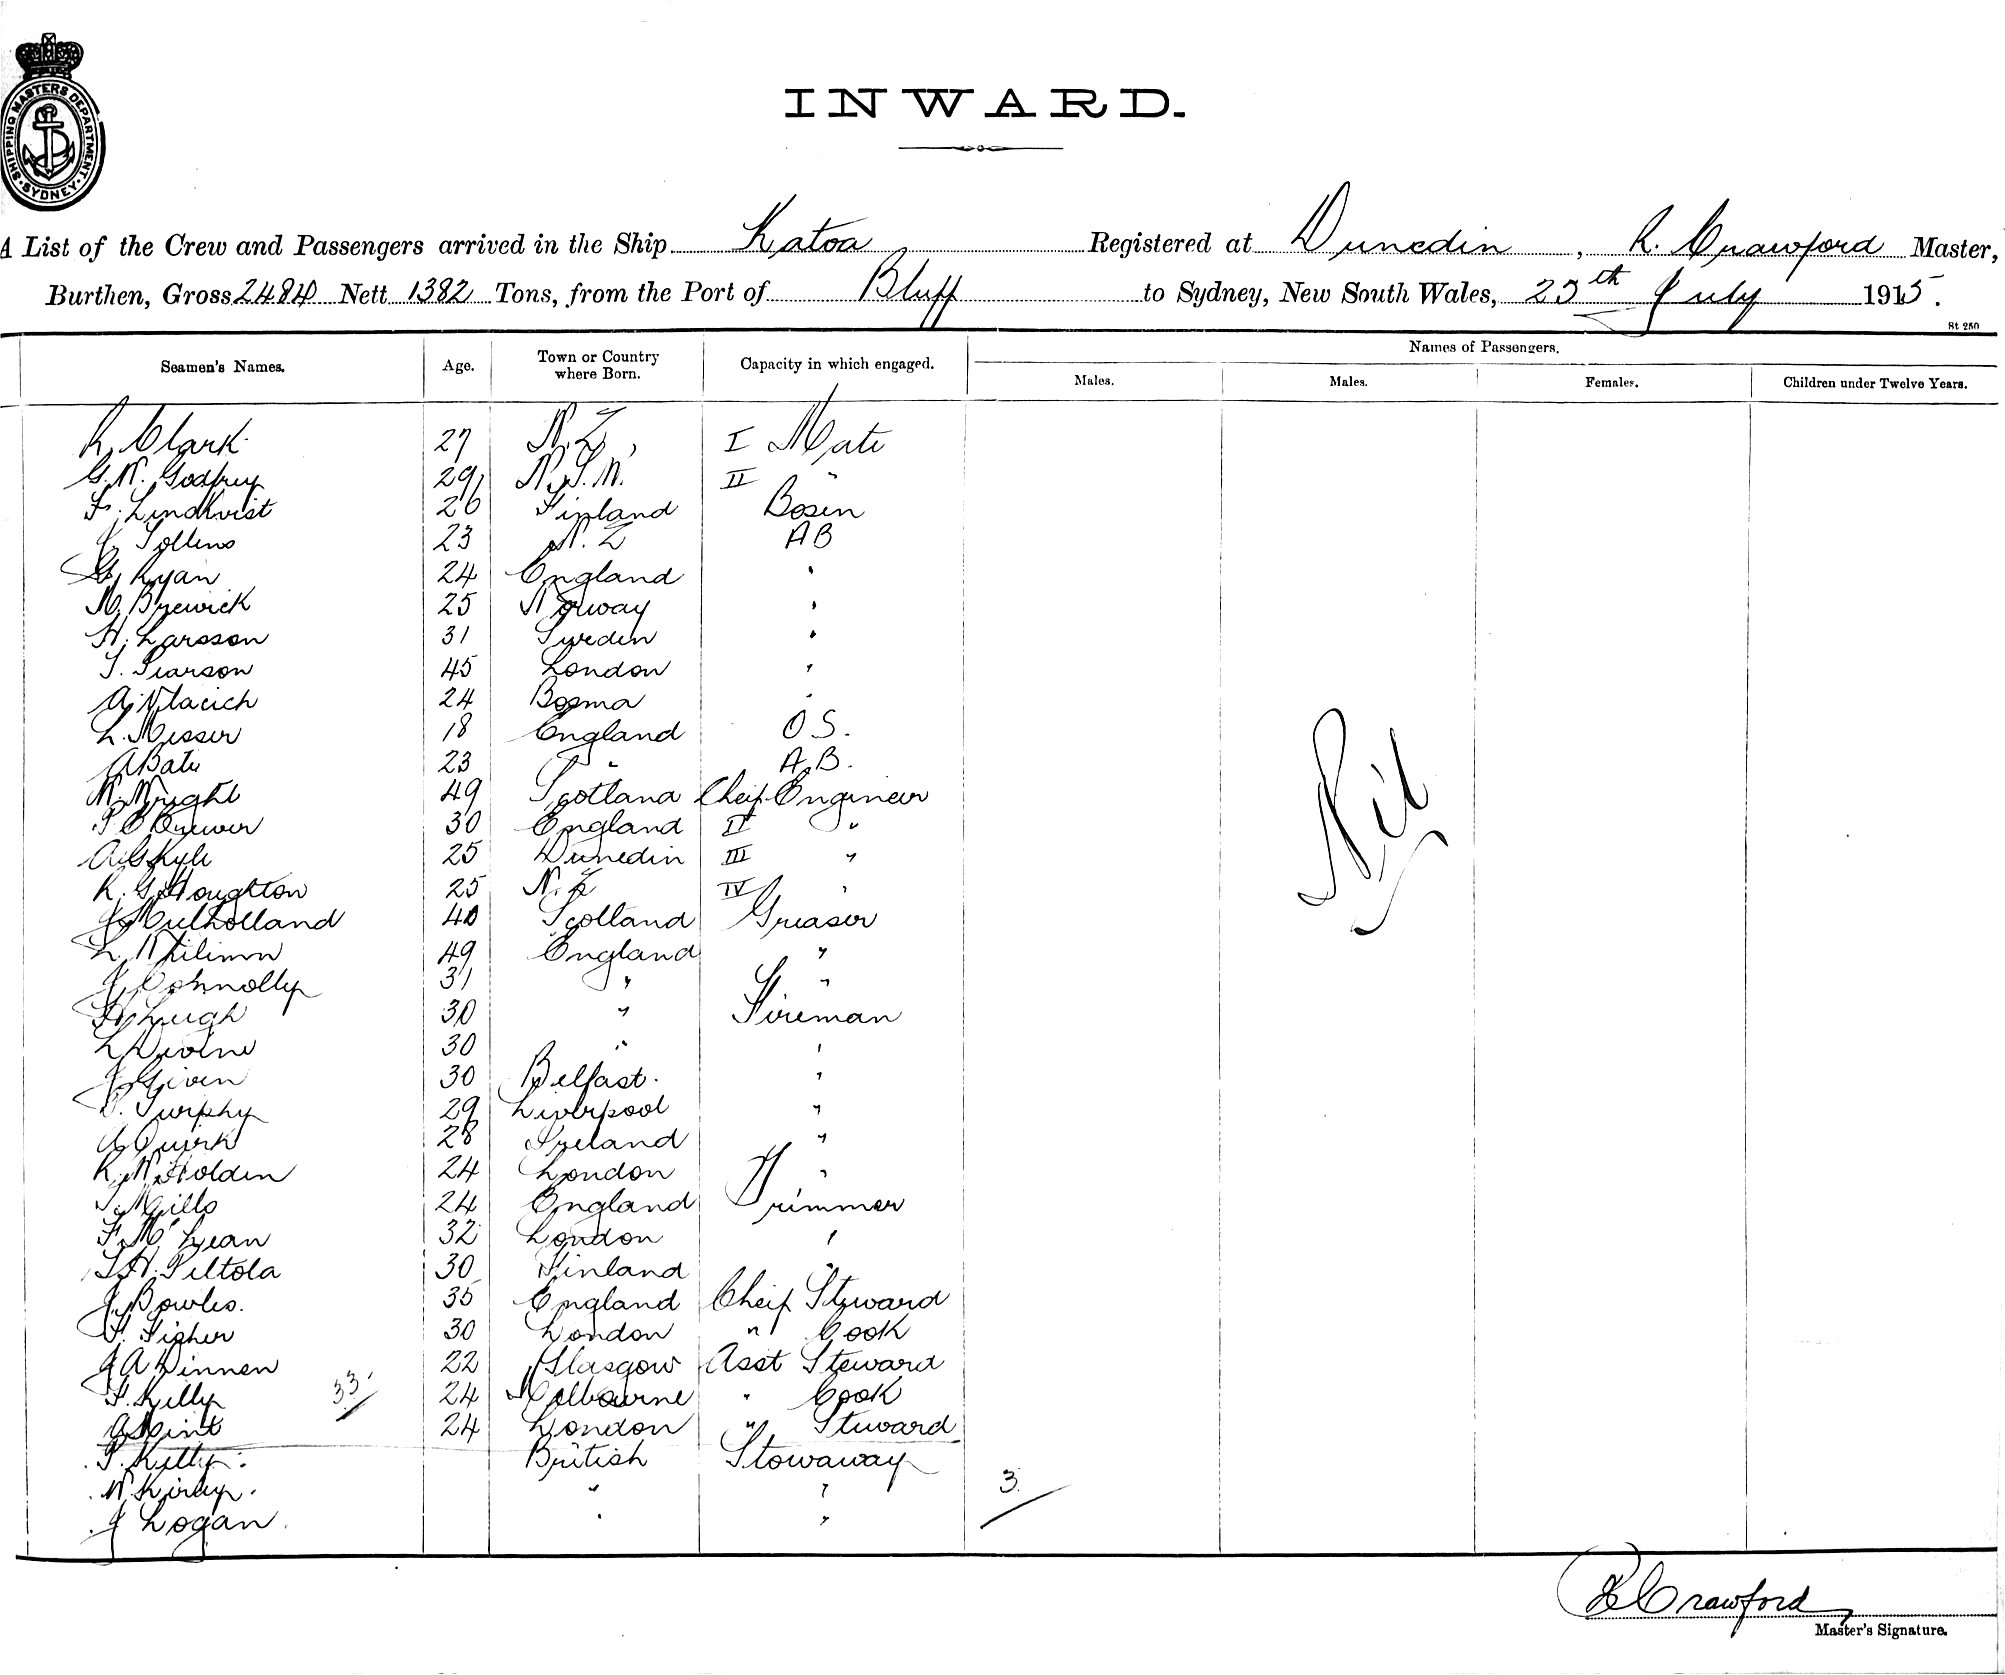 SHIPPING MASTERS DEPARTMENT. SYDNEY
INWARD.
A List of the Crew and Passengers arrived in the Ship Katoa Registered at Dunedin, R. Crawford Master,
Burthen, Gross 2484 Nett 1382 Tons, from the Port of Bluff to Sydney, New South Wales, 25th July 1915.
St 250
Seamen's Names. Age. Town or Country where Born. Capacity in which engaged. Names of Passengers.
Males. Males. Females. Children under Twelve Years.
R. Clark 27 N.Z. I Mate
G.W. Godfrey 29 N.S.W. II "
F. Lindkvist 26 Finland Bosen
Tollens 23 N.Z AB
Ryan 24 England "
Brewick 25 Norway "
H. Larsson 31 Sweden "
T. Pearson 45 London "
A. Vlacich 24 Bosma "
L. Messer 18 England O S.
A Bate 23 " A.B.
W. Wright 49 Scotland Cheif Engineer
Brewer 30 England II "
A.G. Kyle 25 Dunedin III "
R. G. Houghton 25 N.Z IV "
J Mulholland 40 Scotland Greaser
L. 49 England "
J. Connolly 31 " "
Hugh 30 " Fireman
L Devine 30 " "
J Given 30 Belfast. "
Turphy 29 Liverpool "
A Quirk 28 Ireland "
R. W. Holden 24 London "
T. Mills 24 England Trimmer
F. McLean 32 London "
Peltola 30 Finland "
J. Bowles. 35 England Cheif Steward
F. Fisher 30 London " Cook
J A Dinnen 22 Glasgow Asst Steward
Kelly 33 24 Melbourne " Cook
24 London " Steward
Kelly. British Stowaway
W. Kirby. " " 3.
J Logan. " "
Nil
R Crawford
Master's Signature.